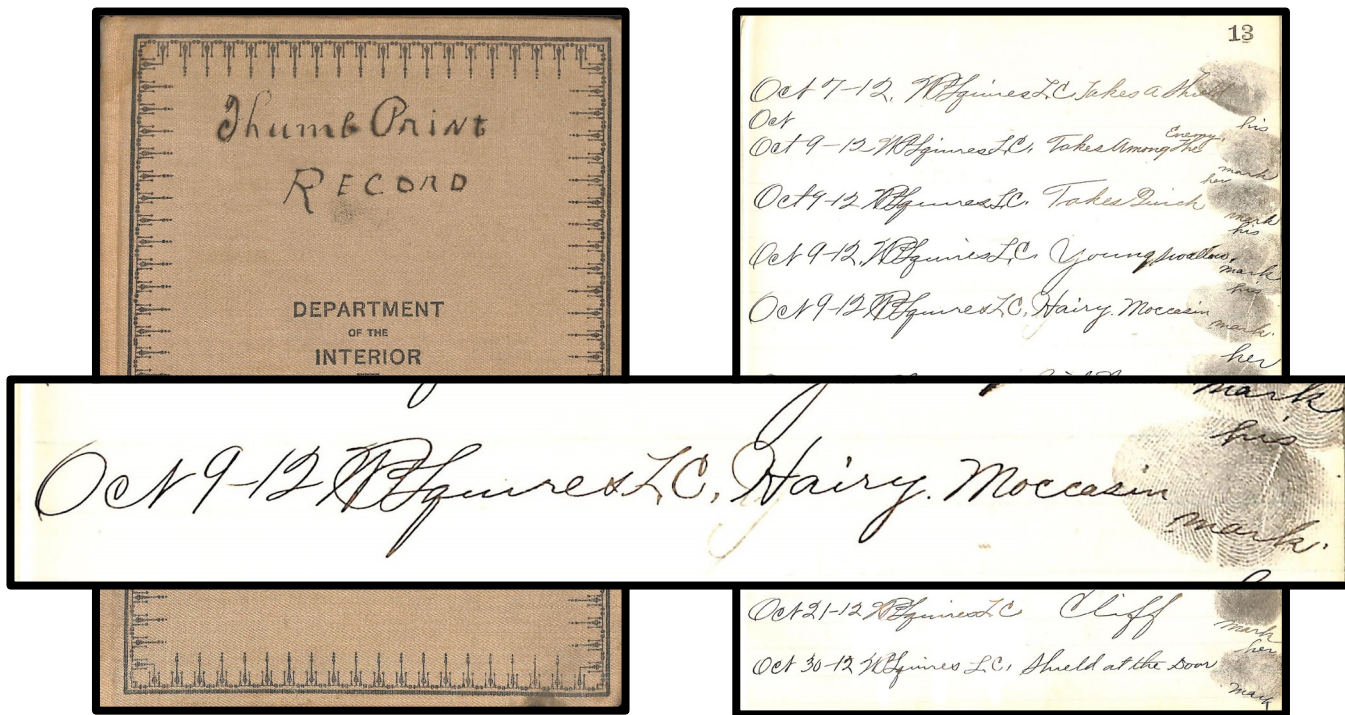 Thumb Print
RECORD
DEPARTMENT
OF THE
INTERIOR
13
Oct 7-12, W B Squires L C Takes a Shield
Oct
his
Oct 9-12 W B Squires L. C. Takes Among the Enemy,
mark
her
Oct 9-12 W B Squires L C. Takes Quick
mark
his
Oct 9-12, W B Squires L, C. Young Swallow,
mark
his
Oct 9-12 W B Squires L C, Hairy. Moccasin
mark.
her
mark
his
Oct 9-12 W B Squires L C, Hairy. Moccasin
mark.
Oct 21-12 W B Squires L C Cliff
mark
her
Oct 30-12 W B Squires L C, Shield at the Door
mark